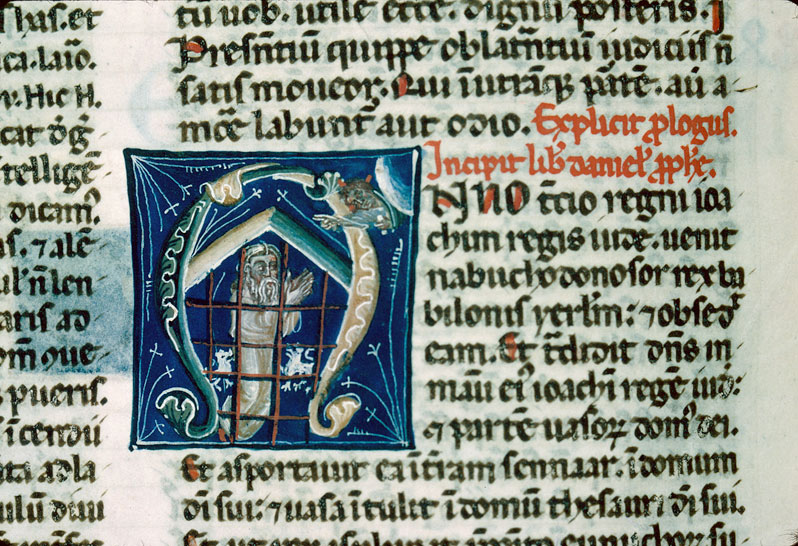 has. et
ca. laio.
v. Hic H.
cat ðg̃
ntelligē
dicam⁹
as. ⁊ alē
ul' ñ len
aris ad
ym̄ que
pueris.
ĩ cendii
ta ad la
ulū diui
tū uob. utile ecce. digniī posteris.
Presñtiū quippe oblatñtiū iudiciis ñ
satis moueor. Qui ĩ utrāq; ptē. aū a
mōe labunt̃ aut odio. Explicit ꝓlogus.
Incipit lib̃ daniel' ꝓph̃e.
ANNO t̃cio regni ioa
chim regis iude. uenit
nabuchodonosor rex ba
bilonis yerl̃m: ⁊ obsed̃
eam. Et t̃didit dñs in
manu ei⁹ ioachĩ regē iud̃:
⁊ partē uasoꝝ dom⁹ dei.
Et asportauit ea ĩ t̃ram sennaar. ĩ domum
d̃i sui: ⁊ uasa ĩ tulit ĩ domū thesauri d̃i sui.